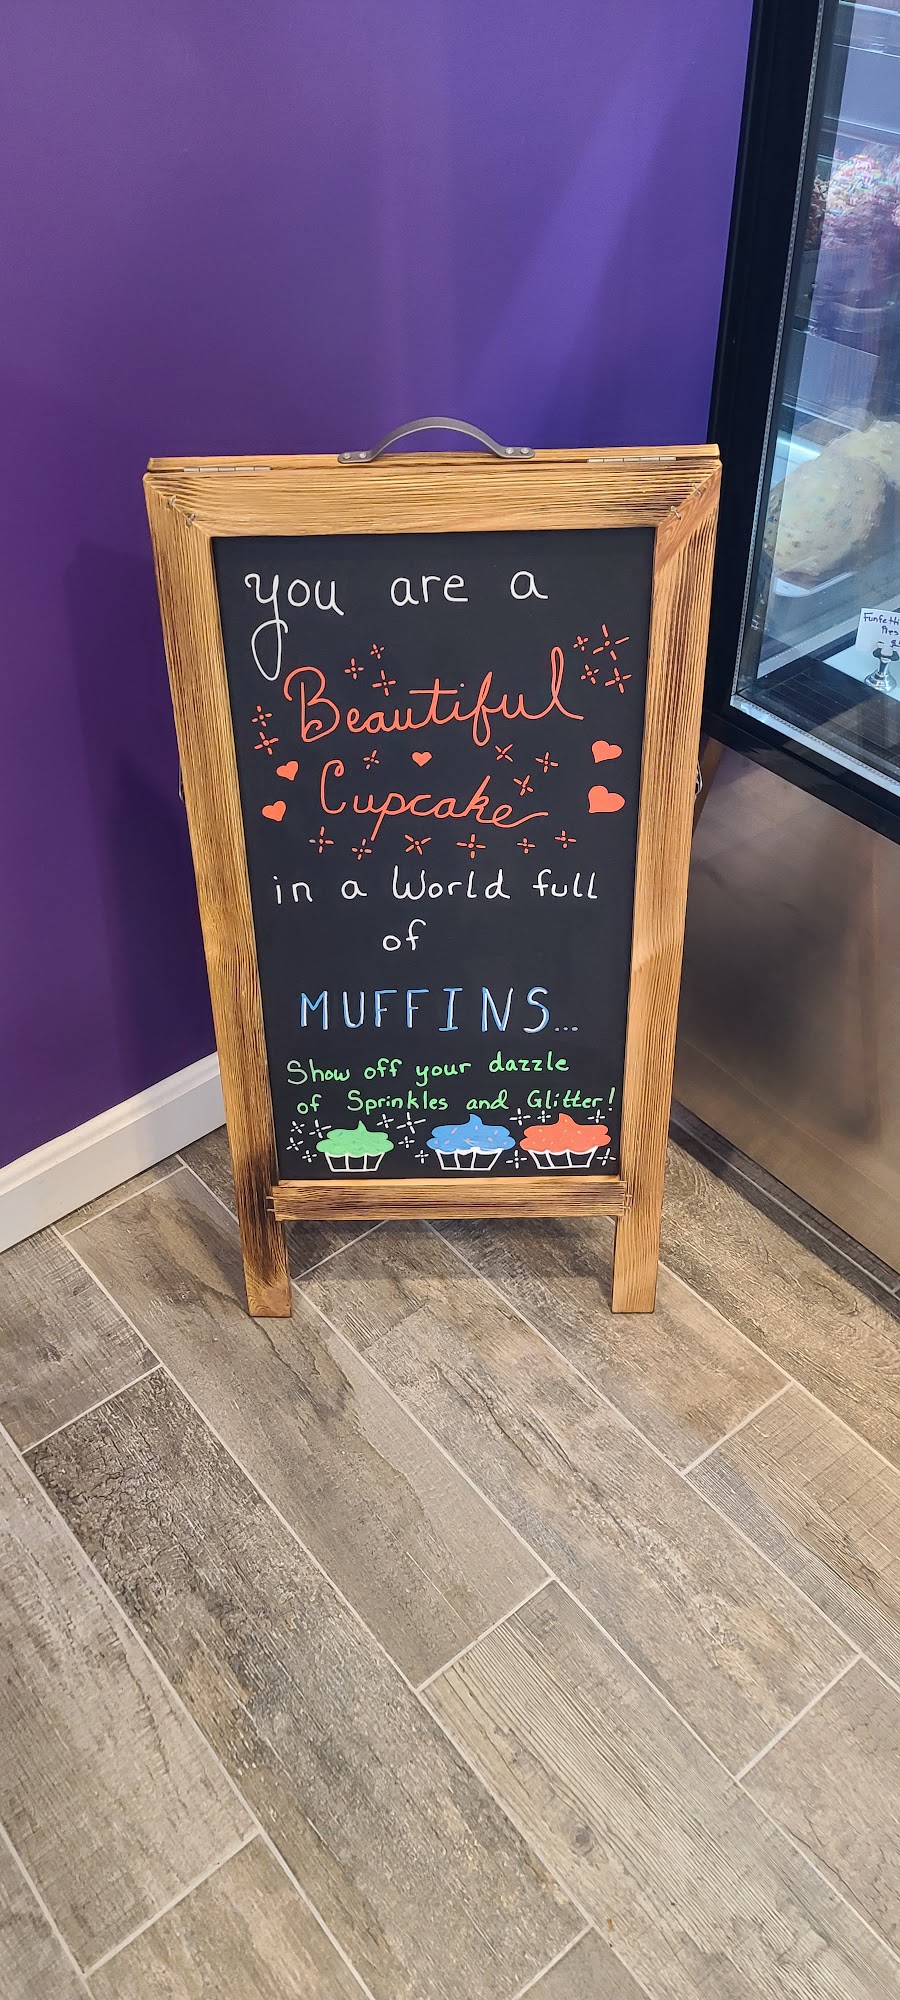 you are a
Beautiful
Cupcake
in a World full
of
MUFFINS...
Show off your dazzle
of Sprinkles and Glitter!